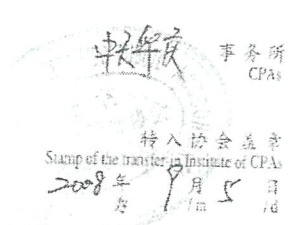 中天华夏 事务所
CPAs
转入协会盖章
Stamp of the transfer-in Institute of CPAs
2008 年 9 月 5 日
/y /m /d